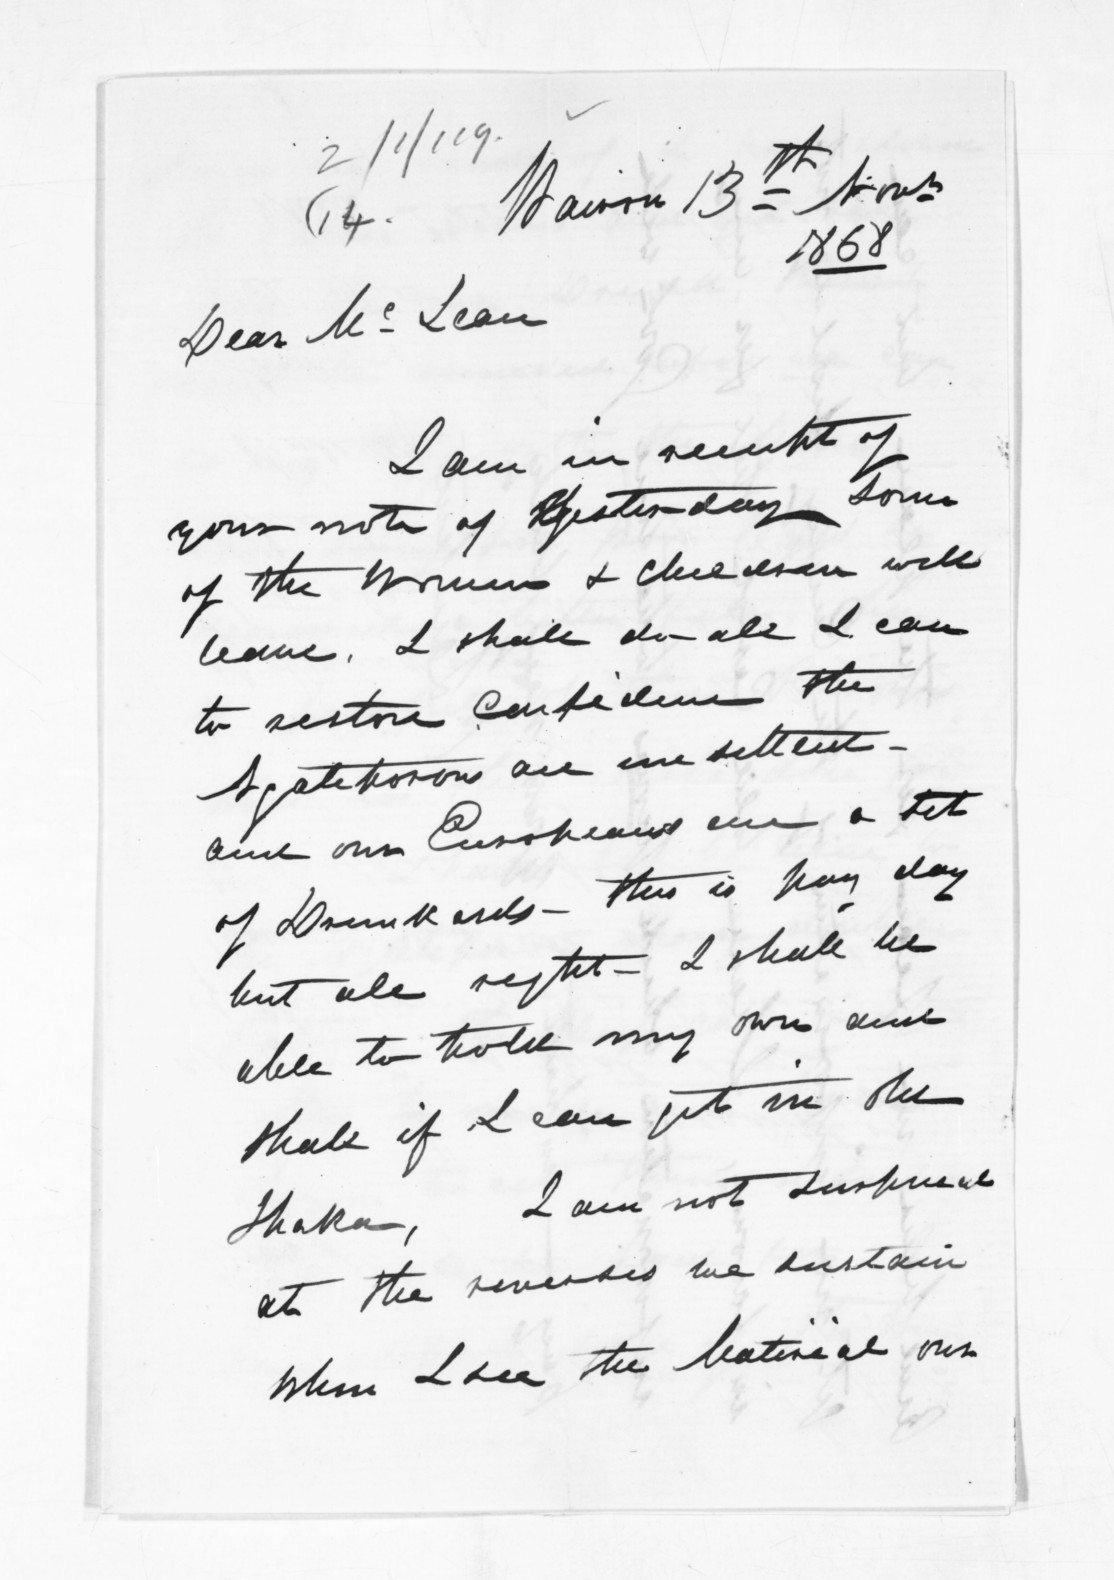 2/1/119.
(14.
Wairoa 13th Novr
1868
Dear Mc Lean
I am in receipt of
your note of Yesterday Some
of the Women & Children will
leave. I shall do all I can
to restore Confidence the
Ngatiporous are unsettled -
and our Europeans are a set
of Drunkards - this is pay day
but all right - I shall be
able to hold my own and
shall if I can get in the
I am not surprised
at the reverses we sustain
When I see the Material our